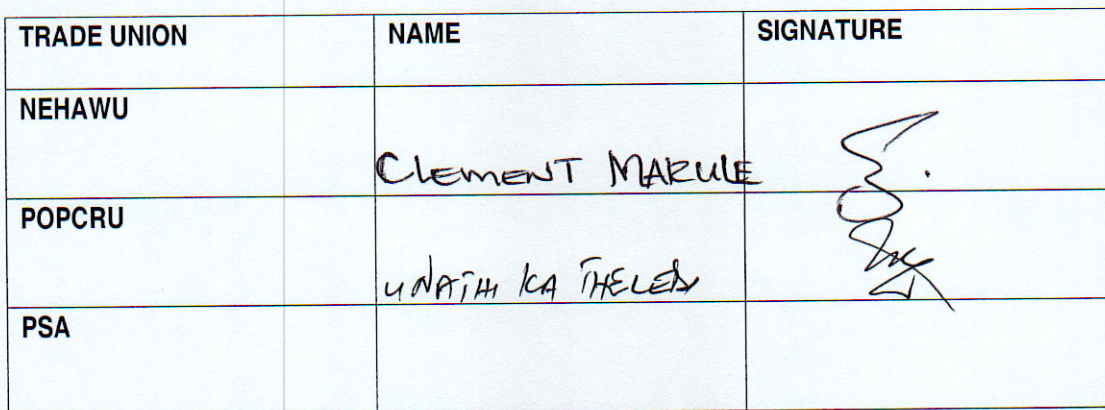 TRADE UNION NAME SIGNATURE
NEHAWU
CLEMENT MARULE
POPCRU
UNATHI KA THELEDI
PSA